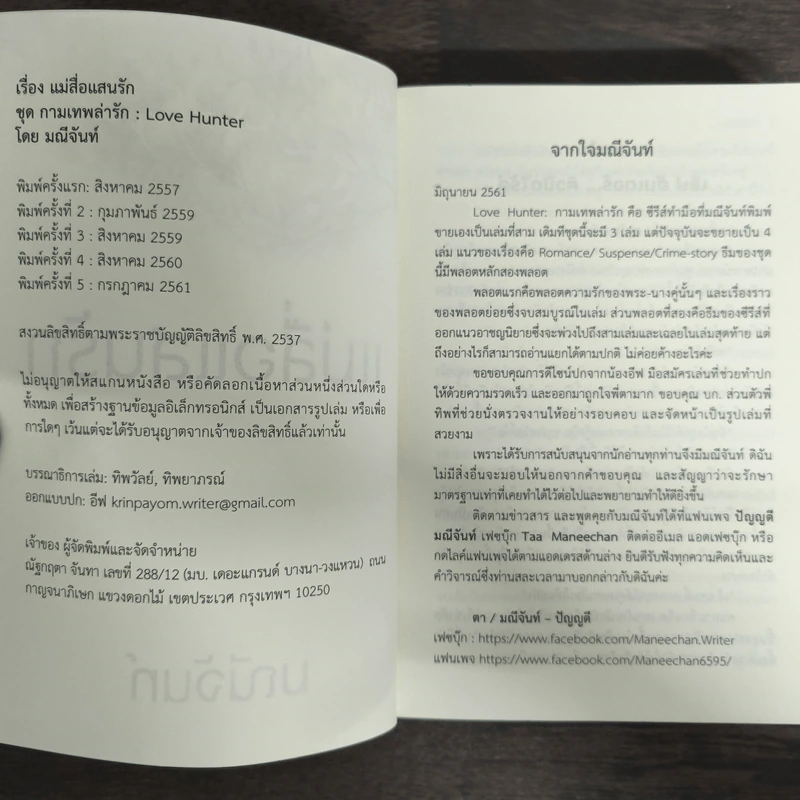 เรื่อง แม่สื่อแสนรัก
ชุด กามเทพล่ารัก : Love Hunter
โดย มณีจันท์
พิมพ์ครั้งแรก: สิงหาคม 2557
พิมพ์ครั้งที่ 2 : กุมภาพันธ์ 2559
พิมพ์ครั้งที่ 3 : สิงหาคม 2559
พิมพ์ครั้งที่ 4 : สิงหาคม 2560
พิมพ์ครั้งที่ 5 : กรกฎาคม 2561
สงวนลิขสิทธิ์ตามพระราชบัญญัติลิขสิทธิ์ พ.ศ. 2537
ไม่อนุญาตให้สแกนหนังสือ หรือคัดลอกเนื้อหาส่วนหนึ่งส่วนใดหรือ
ทั้งหมด เพื่อสร้างฐานข้อมูลอิเล็กทรอนิกส์ เป็นเอกสารรูปเล่ม หรือเพื่อ
การใดๆ เว้นแต่จะได้รับอนุญาตจากเจ้าของลิขสิทธิ์แล้วเท่านั้น
บรรณาธิการเล่ม: ทิพวัลย์, ทิพยาภรณ์
ออกแบบปก: อีฟ krinpayom.writer@gmail.com
เจ้าของ ผู้จัดพิมพ์และจัดจำหน่าย
ณัฐกฤตา จันทา เลขที่ 288/12 (มบ. เดอะแกรนด์ บางนา-วงแหวน) ถนน
กาญจนาภิเษก แขวงดอกไม้ เขตประเวศ กรุงเทพฯ 10250
มณีจันท์
จากใจมณีจันท์
มิถุนายน 2561
Love Hunter: กามเทพล่ารัก คือ ซีรีส์ทำมือที่มณีจันท์พิมพ์
ขายเองเป็นเล่มที่สาม เดิมทีชุดนี้จะมี 3 เล่ม แต่ปัจจุบันจะขยายเป็น 4
เล่ม แนวของเรื่องคือ Romance/ Suspense/Crime-story ธีมของชุด
นี้มีพลอตหลักสองพลอต
พลอตแรกคือพลอตความรักของพระ-นางคู่นั้นๆ และเรื่องราว
ของพลอตย่อยซึ่งจบสมบูรณ์ในเล่ม ส่วนพลอตที่สองคือธีมของซีรีส์ที่
ออกแนวอาชญนิยายซึ่งจะพ่วงไปถึงสามเล่มและเฉลยในเล่มสุดท้าย แต่
ถึงอย่างไรก็สามารถอ่านแยกได้ตามปกติ ไม่ค่อยค้างอะไรค่ะ
ขอขอบคุณการดีไซน์ปกจากน้องอีฟ มือสมัครเล่นที่ช่วยทำปก
ให้ด้วยความรวดเร็ว และออกมาถูกใจพี่ตามาก ขอบคุณ บก. ส่วนตัวพี่
ทิพที่ช่วยนั่งตรวจงานให้อย่างรอบคอบ และจัดหน้าเป็นรูปเล่มที่
สวยงาม
เพราะได้รับการสนับสนุนจากนักอ่านทุกท่านจึงมีมณีจันท์ ดิฉัน
ไม่มีสิ่งอื่นจะมอบให้นอกจากคำขอบคุณ และสัญญาว่าจะรักษา
มาตรฐานเท่าที่เคยทำได้ไว้ต่อไปและพยายามทำให้ดียิ่งขึ้น
ติดตามข่าวสาร และพูดคุยกับมณีจันท์ได้ที่แฟนเพจ ปัญญดี
มณีจันท์ เฟซบุ๊ก Taa Maneechan ติดต่ออีเมล แอดเฟซบุ๊ก หรือ
กดไลค์แฟนเพจได้ตามแอดเดรสด้านล่าง ยินดีรับฟังทุกความคิดเห็นและ
คำวิจารณ์ซึ่งท่านสละเวลามาบอกกล่าวกับดิฉันค่ะ
ตา / มณีจันท์ – ปัญญดี
เฟซบุ๊ก : https://www.facebook.com/Maneechan.Writer
แฟนเพจ https://www.facebook.com/Maneechan6595/